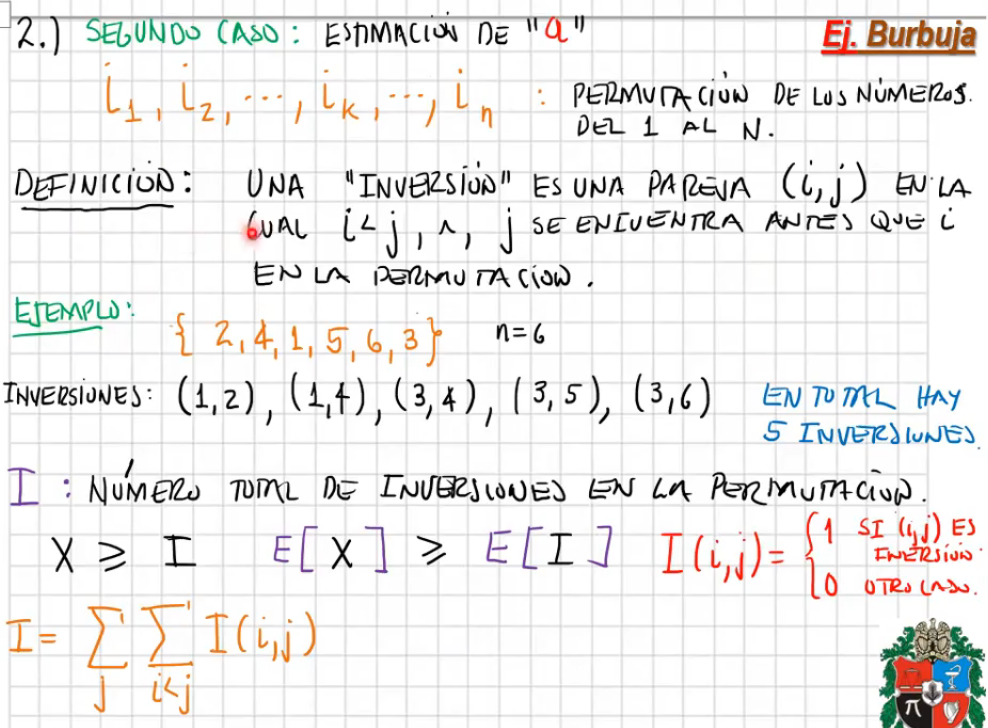 2.) SEGUNDO CASO: ESTIMACIÓN DE "a"
Ej. Burbuja
i₁, i₂, ..., iₖ, ..., iₙ : PERMUTACIÓN DE LOS NÚMEROS.
DEL 1 AL N.
DEFINICIÓN: UNA "INVERSIÓN" ES UNA PAREJA (i,j) EN LA
CUAL i<j, ∧, j SE ENCUENTRA ANTES QUE i
EN LA PERMUTACIÓN.
EJEMPLO: { 2, 4, 1, 5, 6, 3 } n=6
INVERSIONES: (1,2), (1,4), (3,4), (3,5), (3,6)
EN TOTAL HAY
5 INVERSIONES.
I : NÚMERO TOTAL DE INVERSIONES EN LA PERMUTACIÓN.
X ⩾ I E[X] ⩾ E[I] I(i,j) = { 1 SI (i,j) ES INVERSIÓN.
0 OTRO CASO.
I = ∑j ∑i<j I(i,j)
π